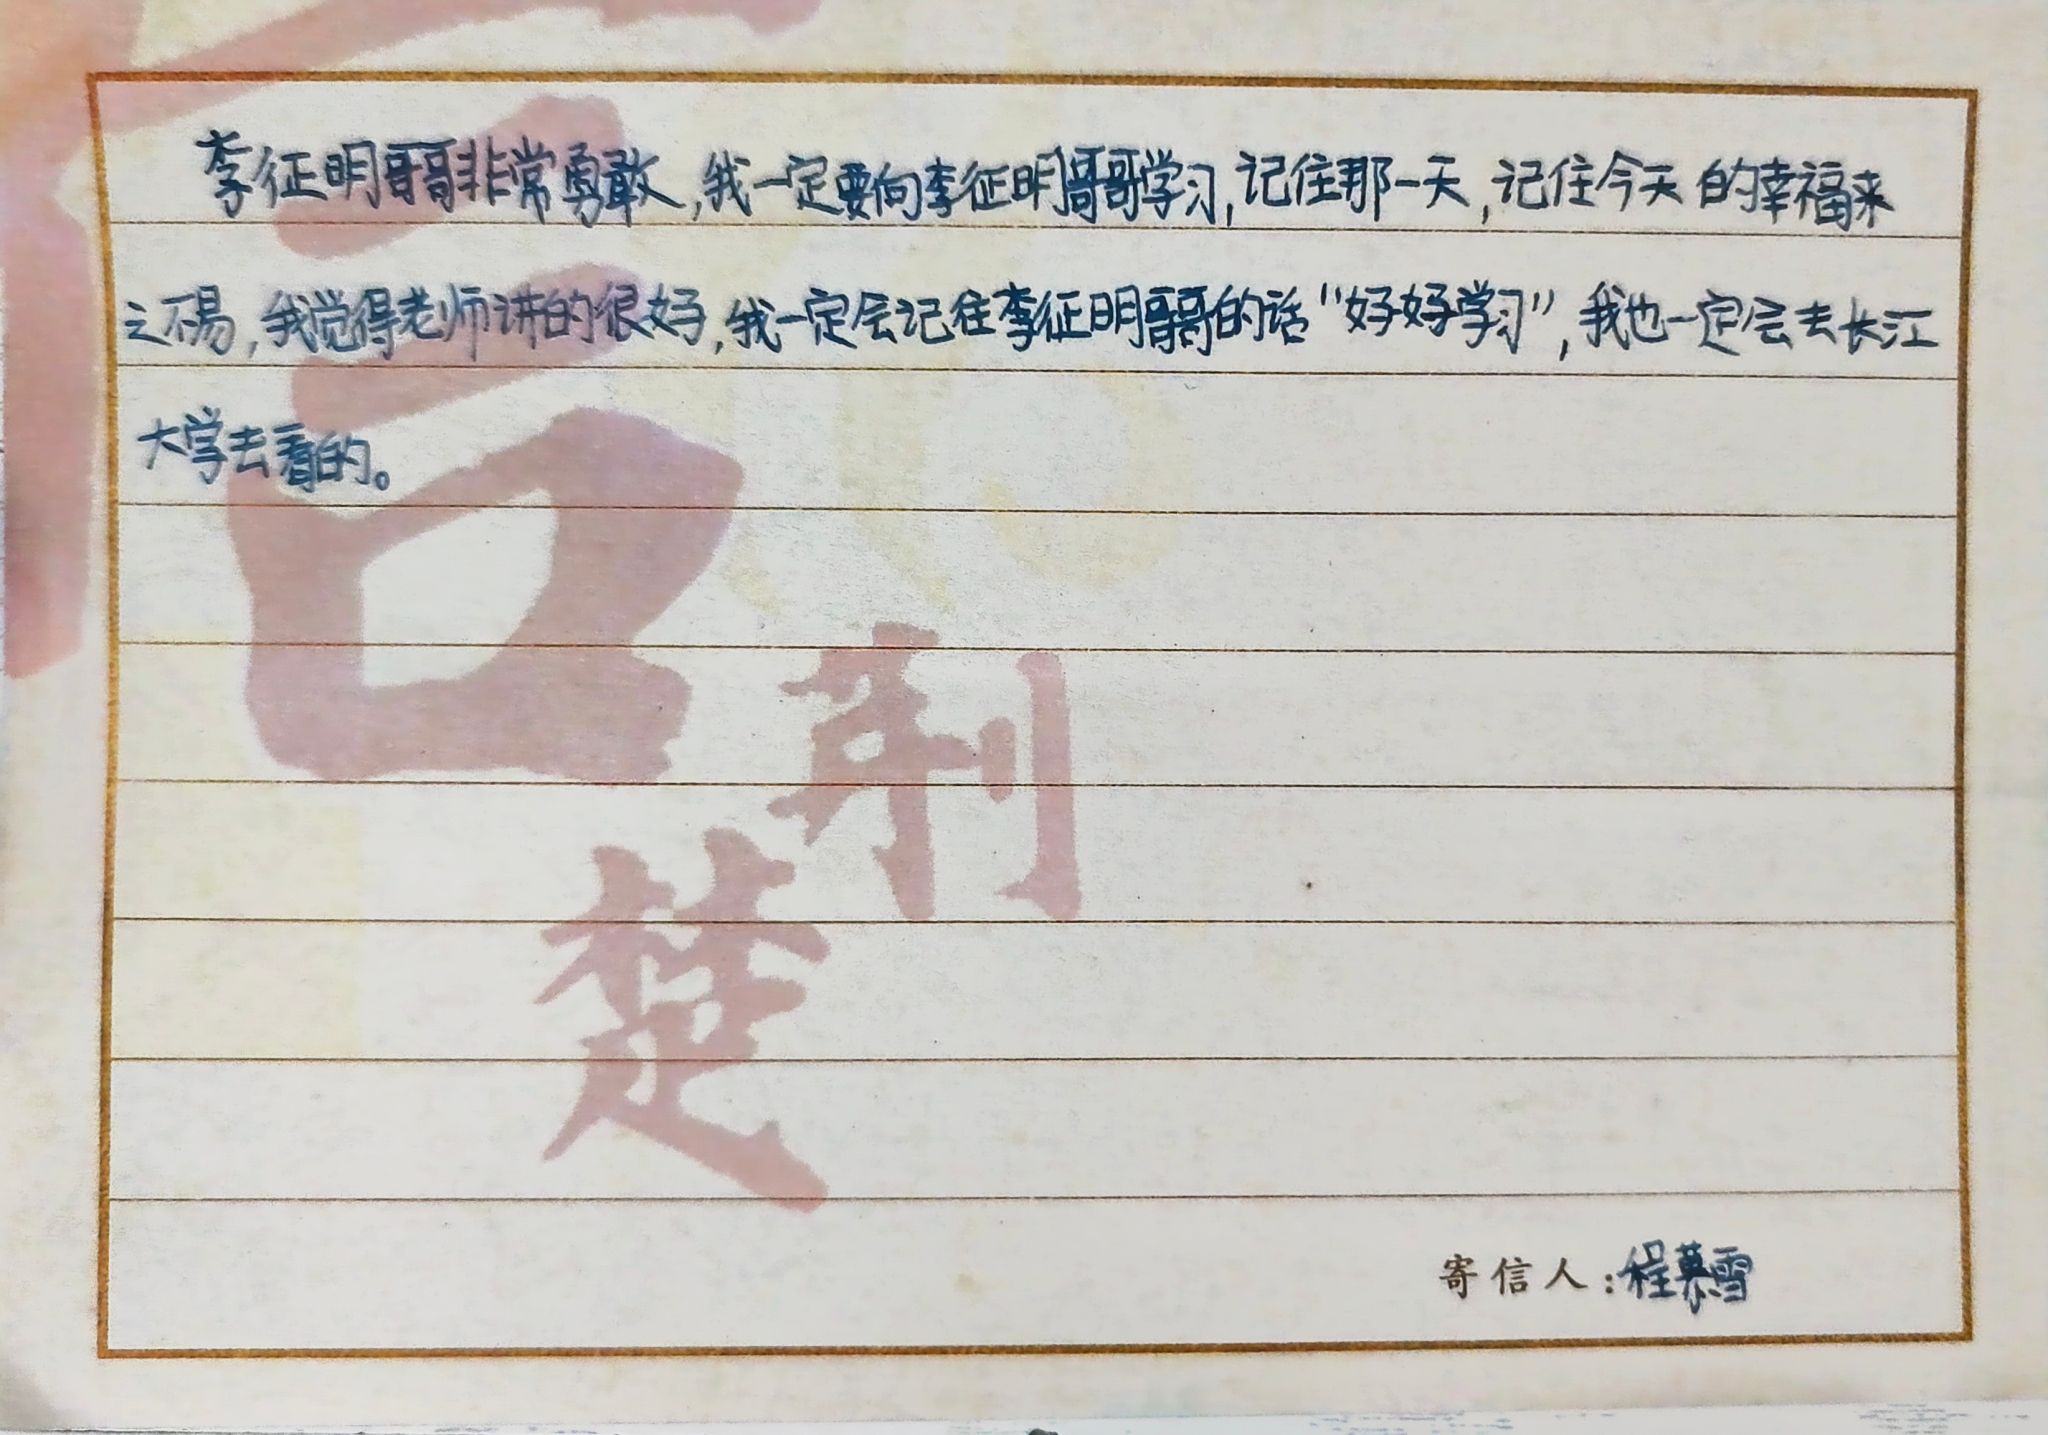 李征明哥哥非常勇敢,我一定要向李征明哥哥学习,记住那一天,记住今天的幸福来
之不易,我觉得老师讲的很好,我一定会记住李征明哥哥的话“好好学习”,我也一定会去长江
大学去看的。
荆
楚
寄信人:程慕雪